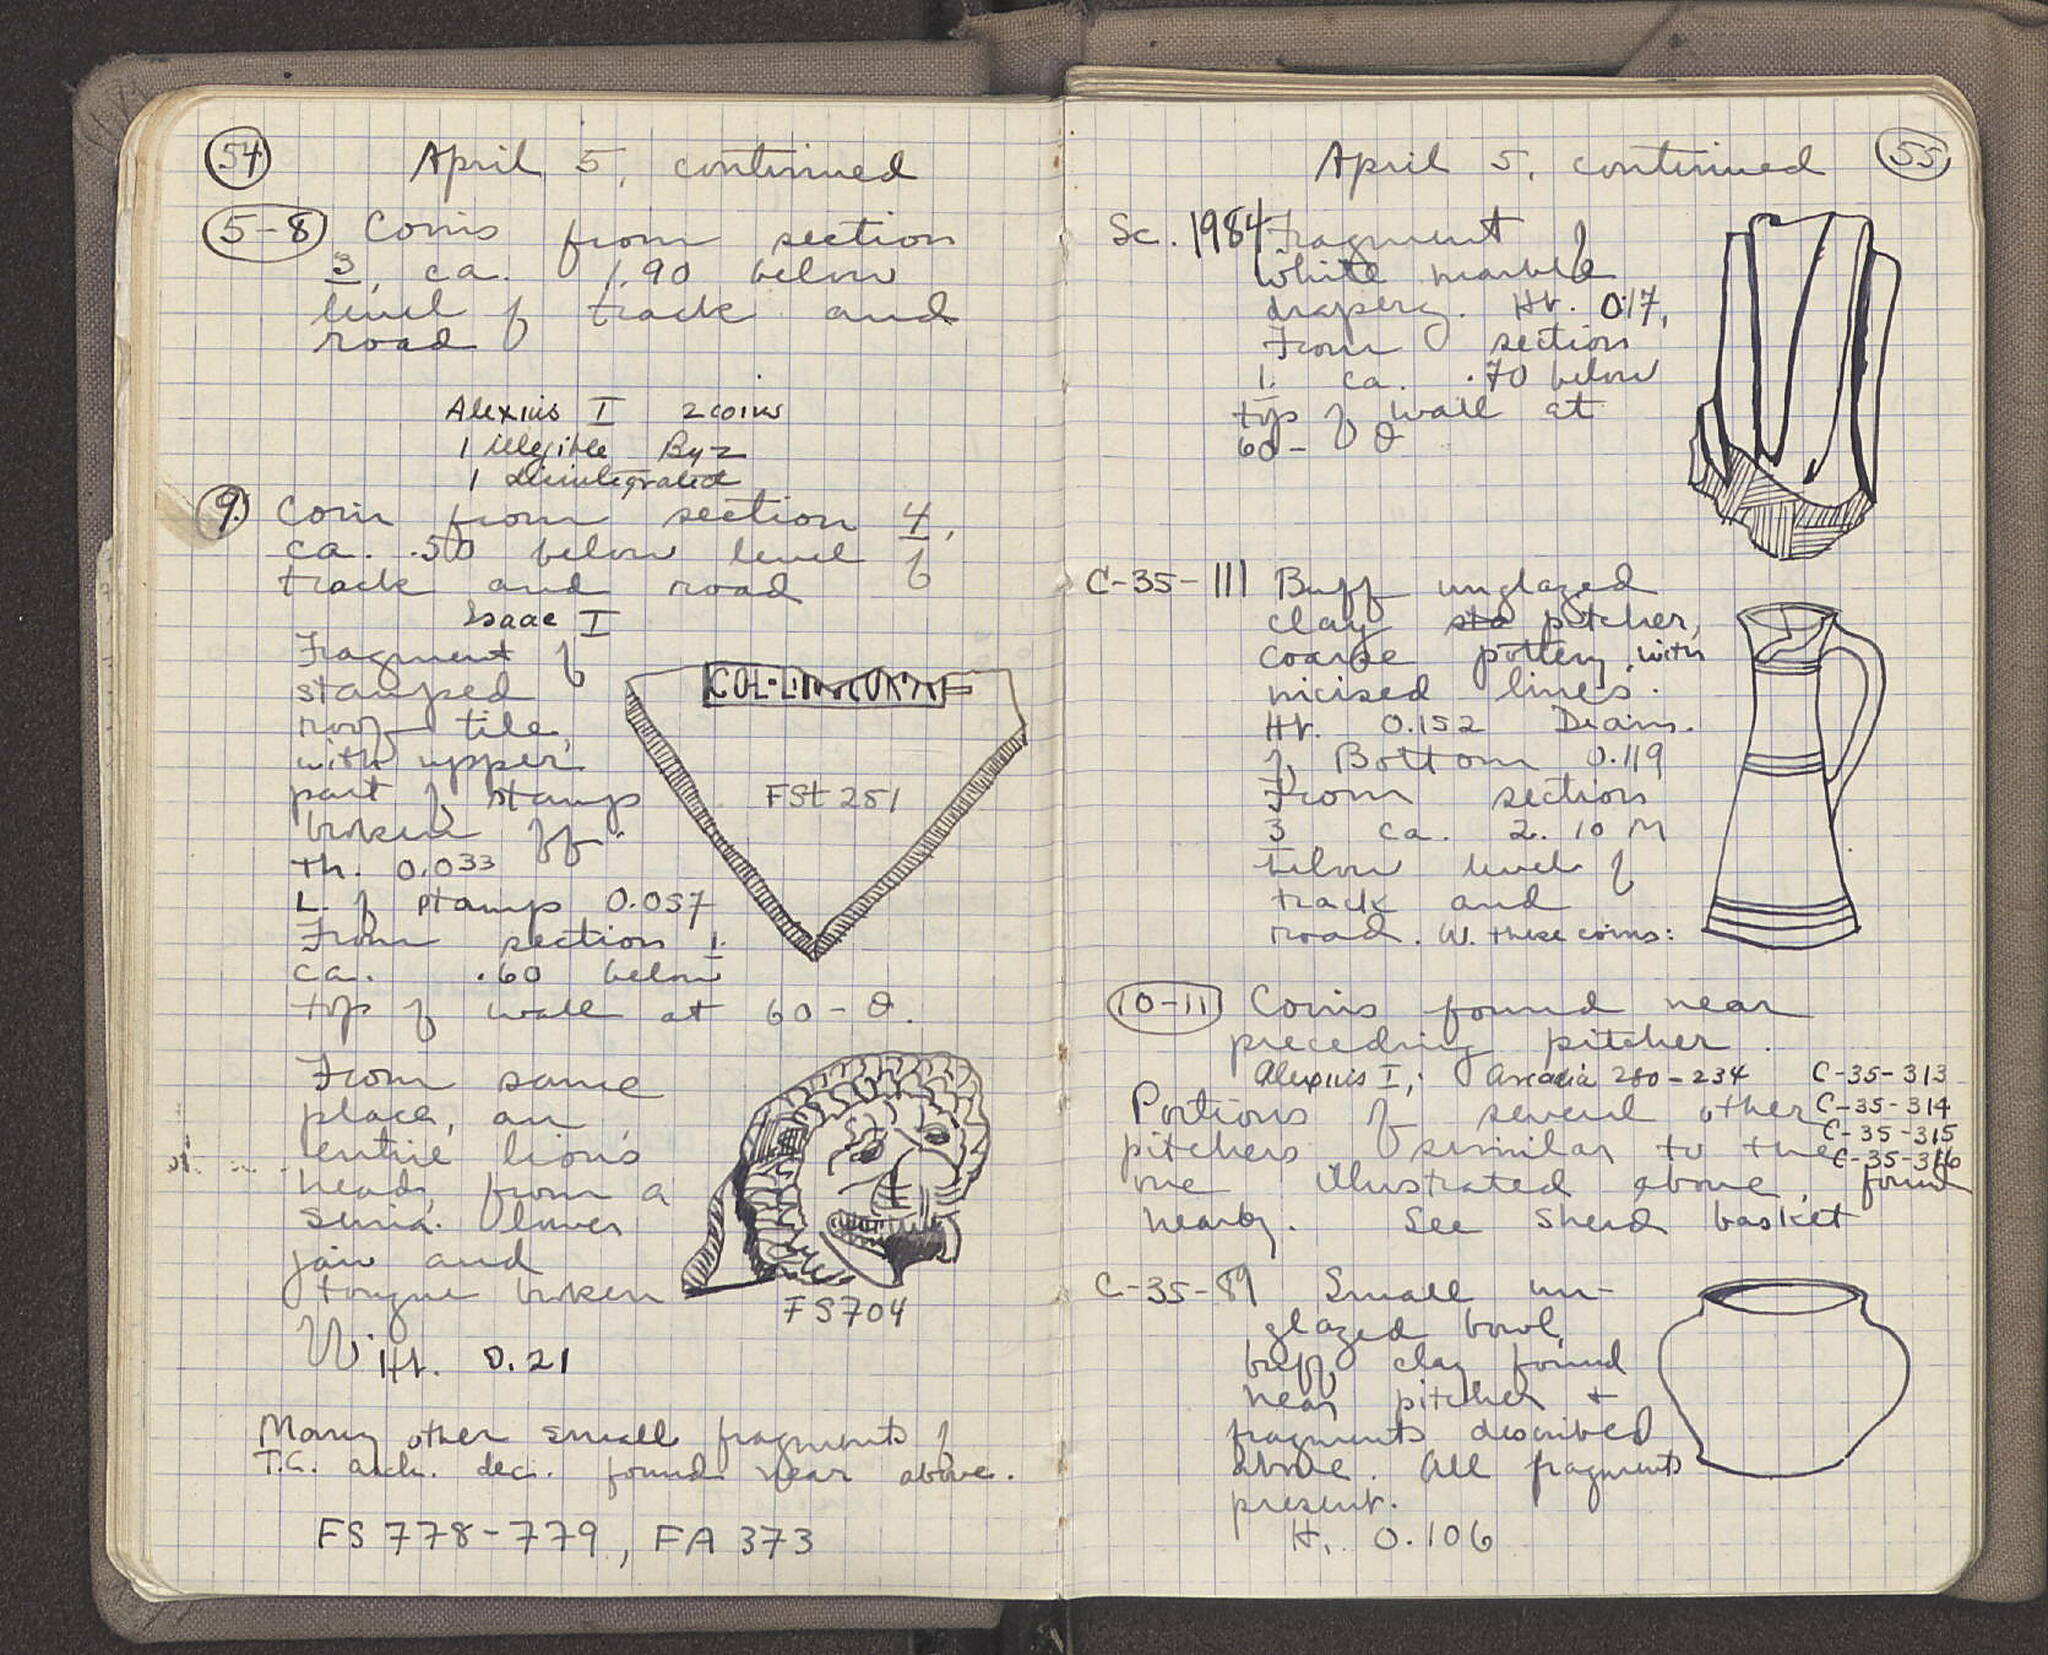 54
April 5, continued
5-8 Coins from section
3, ca. 1.90 below
level of track and
road
Alexius I 2 coins
1 illegible Byz
1 disintegrated
9. Coin from section 4,
ca. .50 below level of
track and road
Isaac I
Fragment of
stamped
roof tile,
with upper
part of stamp
broken off.
Th. 0.033
L. of stamp 0.057
From section 1.
ca. .60 below
top of wall at 60-θ.
COL·L
FSt 251
From same
place, an
entire lion's
head, from a
sima. lower
jaw and
tongue broken
Ht. 0.21
FS704
Many other small fragments of
T.C. arch. dec. found near above.
FS 778-779, FA 373
55
April 5, continued
Sc. 1984 Fragment of
white marble
drapery. Ht. 0.17,
From section
1. ca. .70 below
top of wall at
60-θ
C-35-111 Buff unglazed
clay sta pitcher,
coarse pottery, with
incised lines.
Ht. 0.152 Diam.
of Bottom 0.119
From section
3 ca. 2.10 M
below level of
track and
road. W. these coins:
10-11 Coins found near
preceding pitcher.
Alexius I, Arcadia 280-234
C-35-313
C-35-314
C-35-315
C-35-316
Portions of several other
pitchers similar to the
one illustrated above, found
nearby. See sherd basket
C-35-89 Small un-
glazed bowl,
buff clay found
near pitcher +
fragments described
above. All fragments
present.
H. 0.106